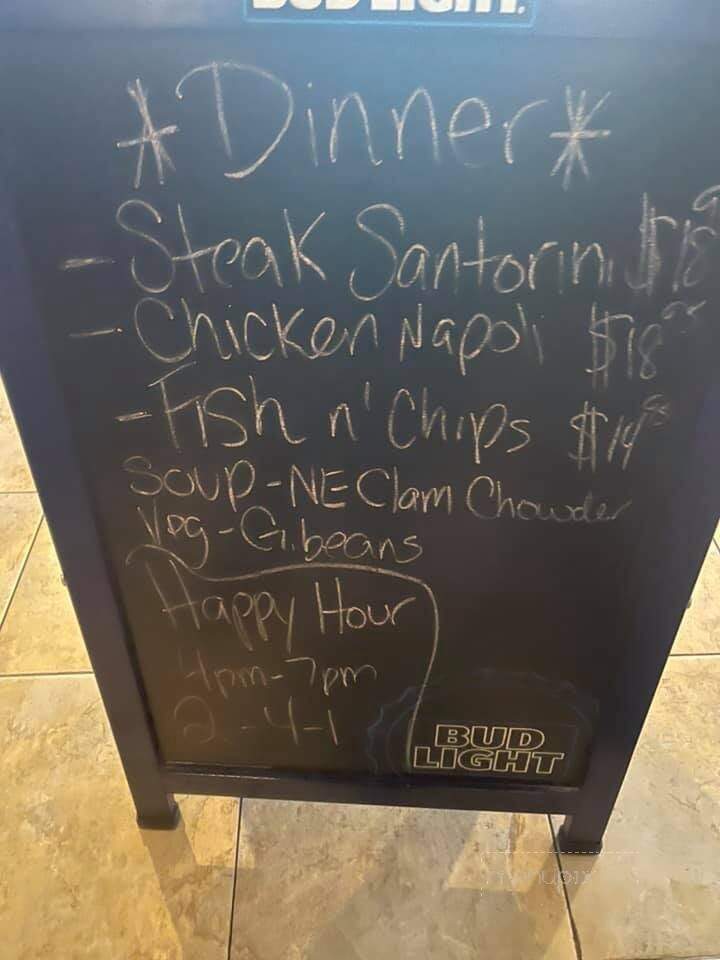 BUD LIGHT.
*Dinner*
- Steak Santorini $18
- Chicken Napoli $18
- Fish n' Chips $14
Soup - NE Clam Chowder
Veg - G. beans
Happy Hour
4pm-7pm
2-4-1
BUD
LIGHT